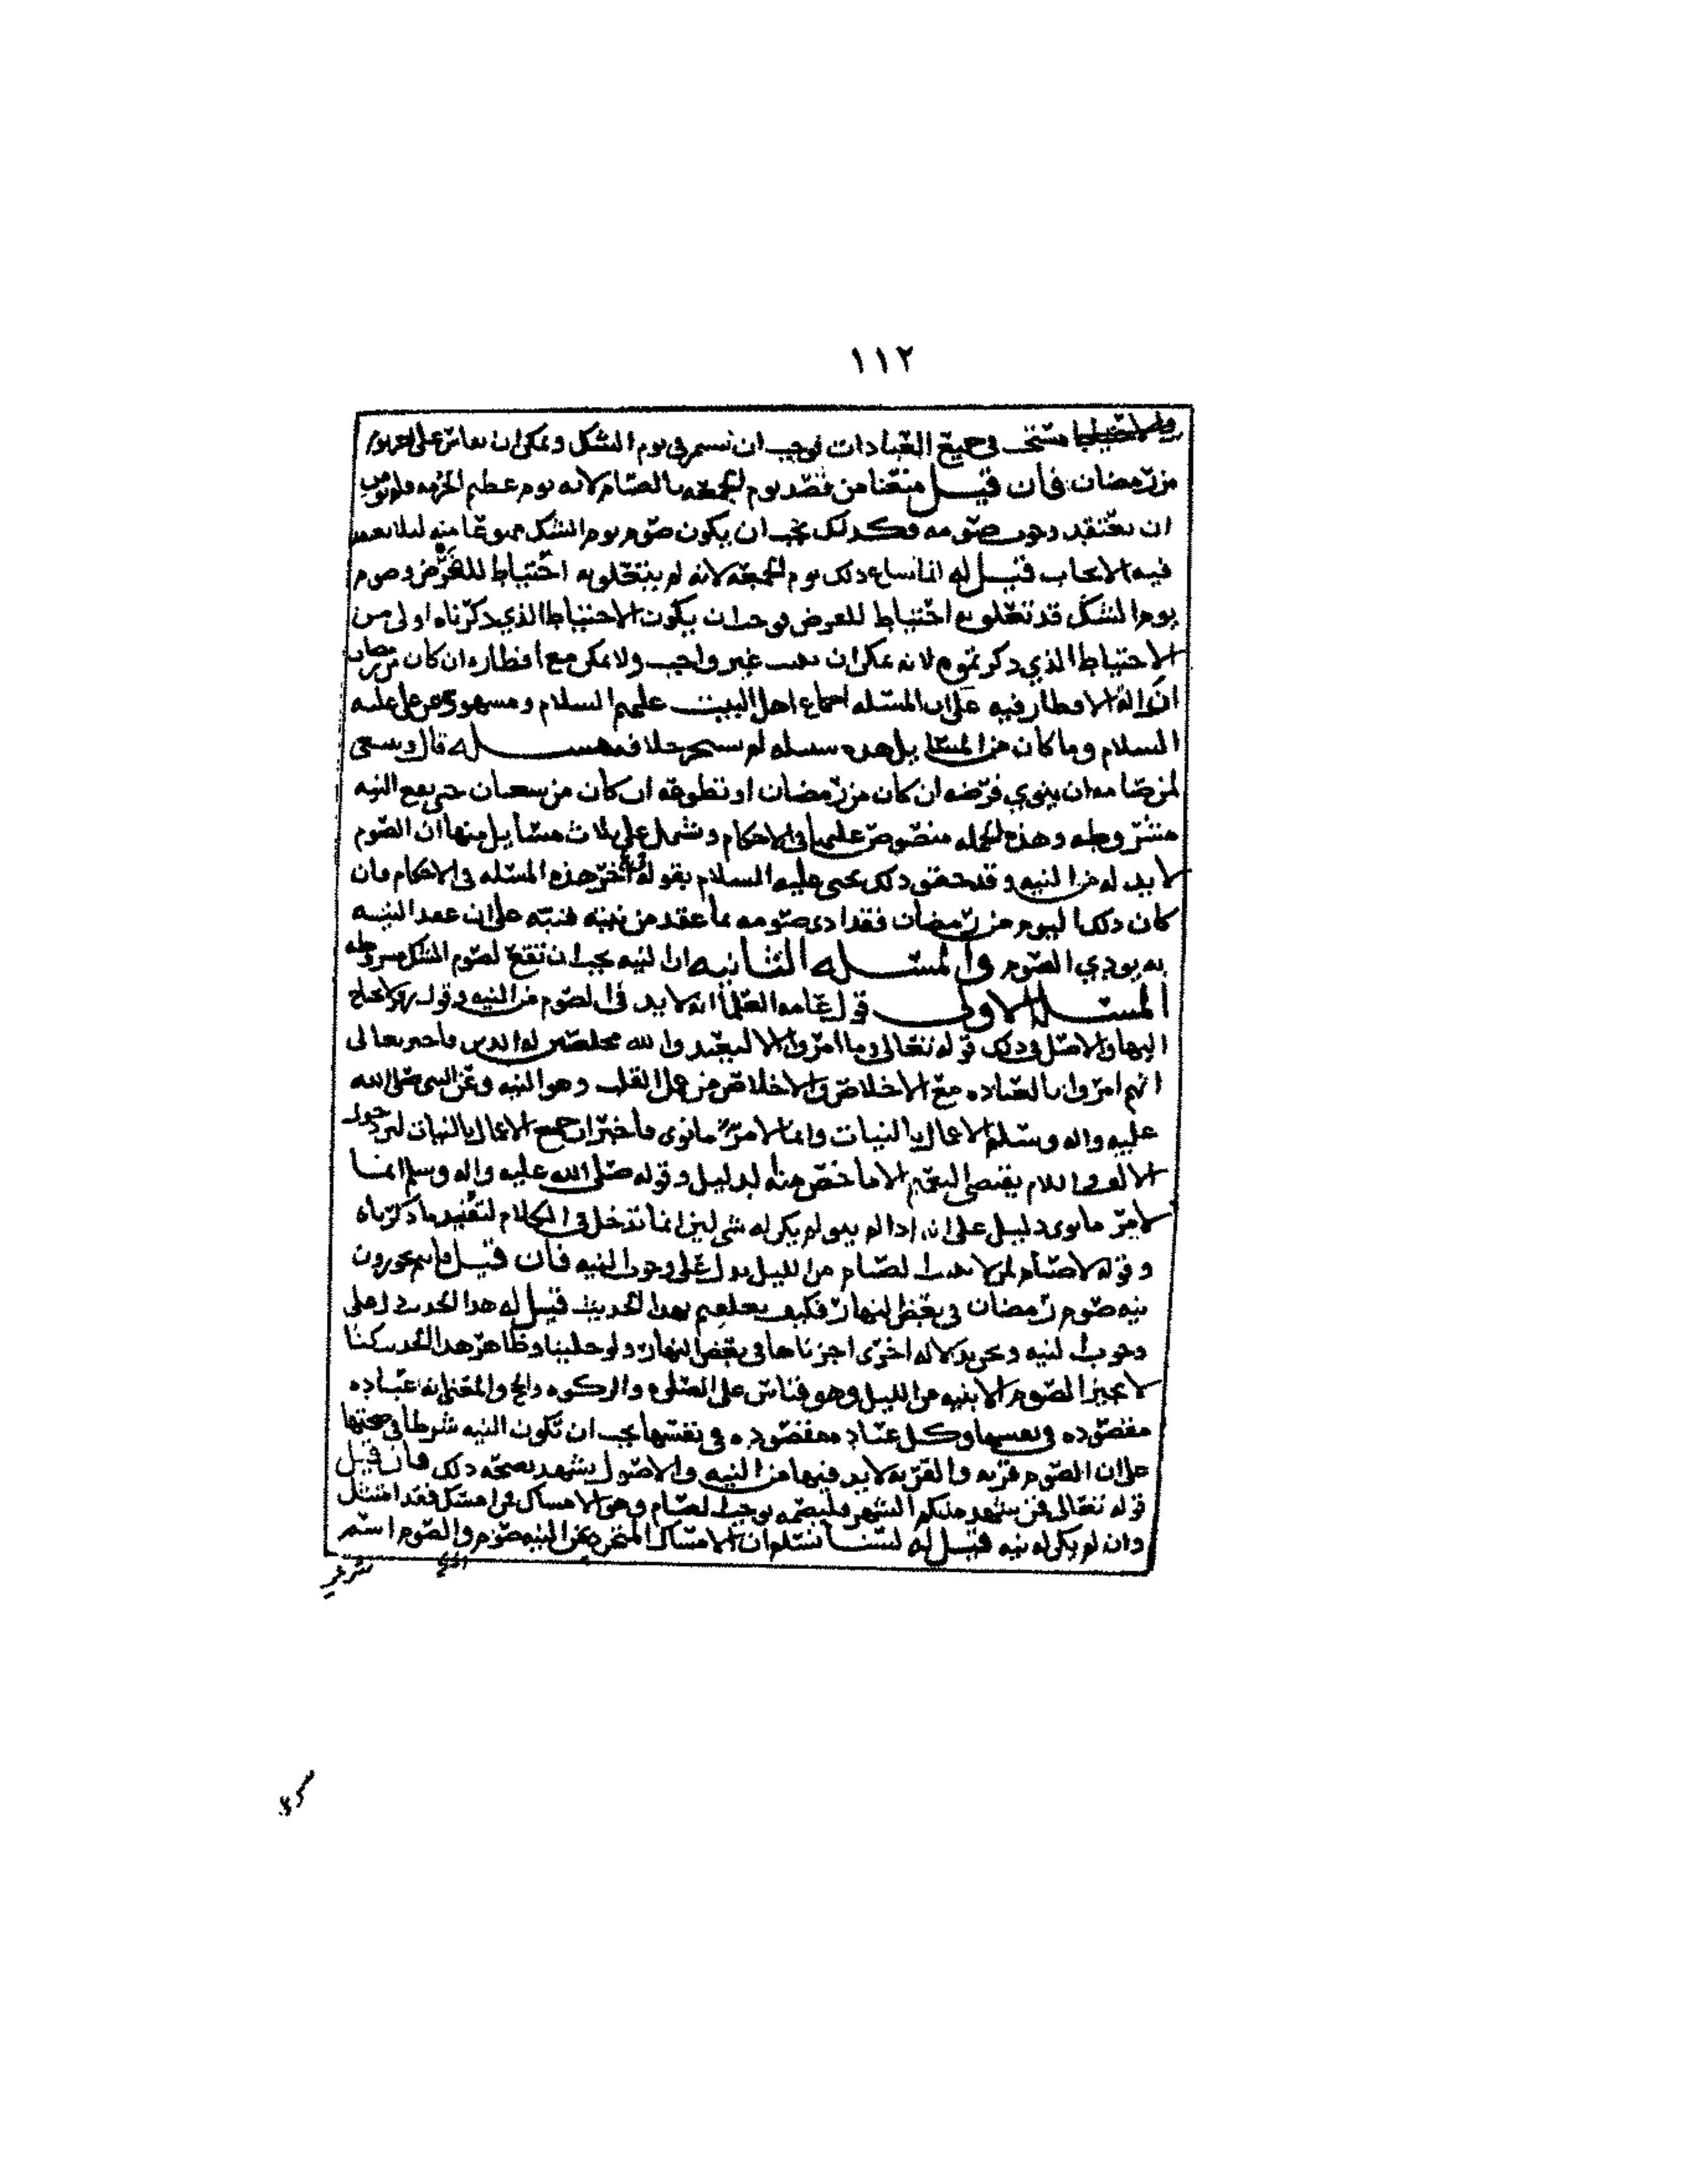 ١١٢
والاحتياط مستحب في جميع العبادات فوجب ان يستمر في يوم الشك ويمكن ان يقاس على اخر يوم
من رمضان فان قيل منعنا من قصد يوم الجمعه بالصيام لانه يوم عظيم الحرمه
ان يعتقد وجوب صومه فكذلك يجب ان يكون صوم يوم الشك ممنوعا منه ليلا يعتقد
فيه الايجاب قيل له انما ساغ ذلك يوم الجمعه لانه لم يتعلق به احتياط للفرض وصوم
يوم الشك قد تعلق به احتياط للفرض فوجب ان يكون الاحتياط الذي ذكرناه اولى من
الاحتياط الذي ذكرتموه لانه يمكن ان غير واجب ولا يمكن مع افطاره ان كان من رمضان
ازالة الافطار فيه على ان المسئله اجماع اهل البيت عليهم السلام ومشهور عن علي عليه
السلام وما كان من المسايل هذه سبيله لم خلافه مسئله قال وينبغي
لمن صامه ان ينوي فرضه ان كان من رمضان او تطوعه ان كان من شعبان حتى يقع النيه
مشروطه وهذه الجمله منصوص عليها في الاحكام وتشتمل على ثلاث مسايل منها ان الصوم
لا بد له من النيه وقد حقق ذلك يحيى عليه السلام بقوله في اخر هذه المسئله في الاحكام فان
كان ذلك اليوم من رمضان فقد ادى صومه بما عقد من نيته فنبه على ان عقد النيه
به يودي الصوم والمسئله الثانيه ان النيه يجب ان تقع لصوم الشك مشروطه
المسئله الاولى قول عامه العلما انه لا بد في الصوم من النيه وقول زفر لا يحتاج
اليها والاصل في ذلك قوله تعالى وما امروا الا ليعبدوا الله مخلصين له الدين فاخبر تعالى
انهم امروا بالعباده مع الاخلاص والاخلاص من عمل القلب وهو النيه وعن النبي صلى الله
عليه واله وسلم الاعمال بالنيات وانما لامرئ ما نوى فاخبر ان جميع الاعمال بالنيات لان دخول
الالف واللام يقتضي التعميم الا ما خص منه الدليل وقوله صلى الله عليه واله وسلم انما
لامرئ ما نوى دليل على انه اذا لم ينو لم يكن له شي لان انما تدخل في الكلام لتفيد ما ذكرناه
وقوله لا صيام لمن لا يبيت الصيام من الليل يدل على وجوب النيه فان قيل فانتم تجوزون
نيه صوم رمضان في بعض النهار فكيف تعلقتم بهذا الحديث قيل له هذا الحديث دل على
وجوب النيه ونحن بدلاله اخرى اجزناها في بعض النهار ولو خلينا وظاهر هذا الحديث كنا
لا نجيز الصوم الا بنيه من الليل وهو قياس على الصلوه والزكوه والحج والمعنى انه عباده
مقصوده في نفسها وكل عباده مقصوده في نفسها يجب ان تكون النيه شرطا في صحتها
على ان الصوم قربه والقربه لا بد فيها من النيه والاصول يشهد بصحه ذلك فان قيل
قوله تعالى فمن شهد منكم الشهر فليصمه يوجب الصيام وهو الامساك فمن امسك فقد امتثل
وان لم يكن له نيه قيل له لسنا نسلم ان الامساك المتعري عن النيه صوم والصوم اسم
شرعي